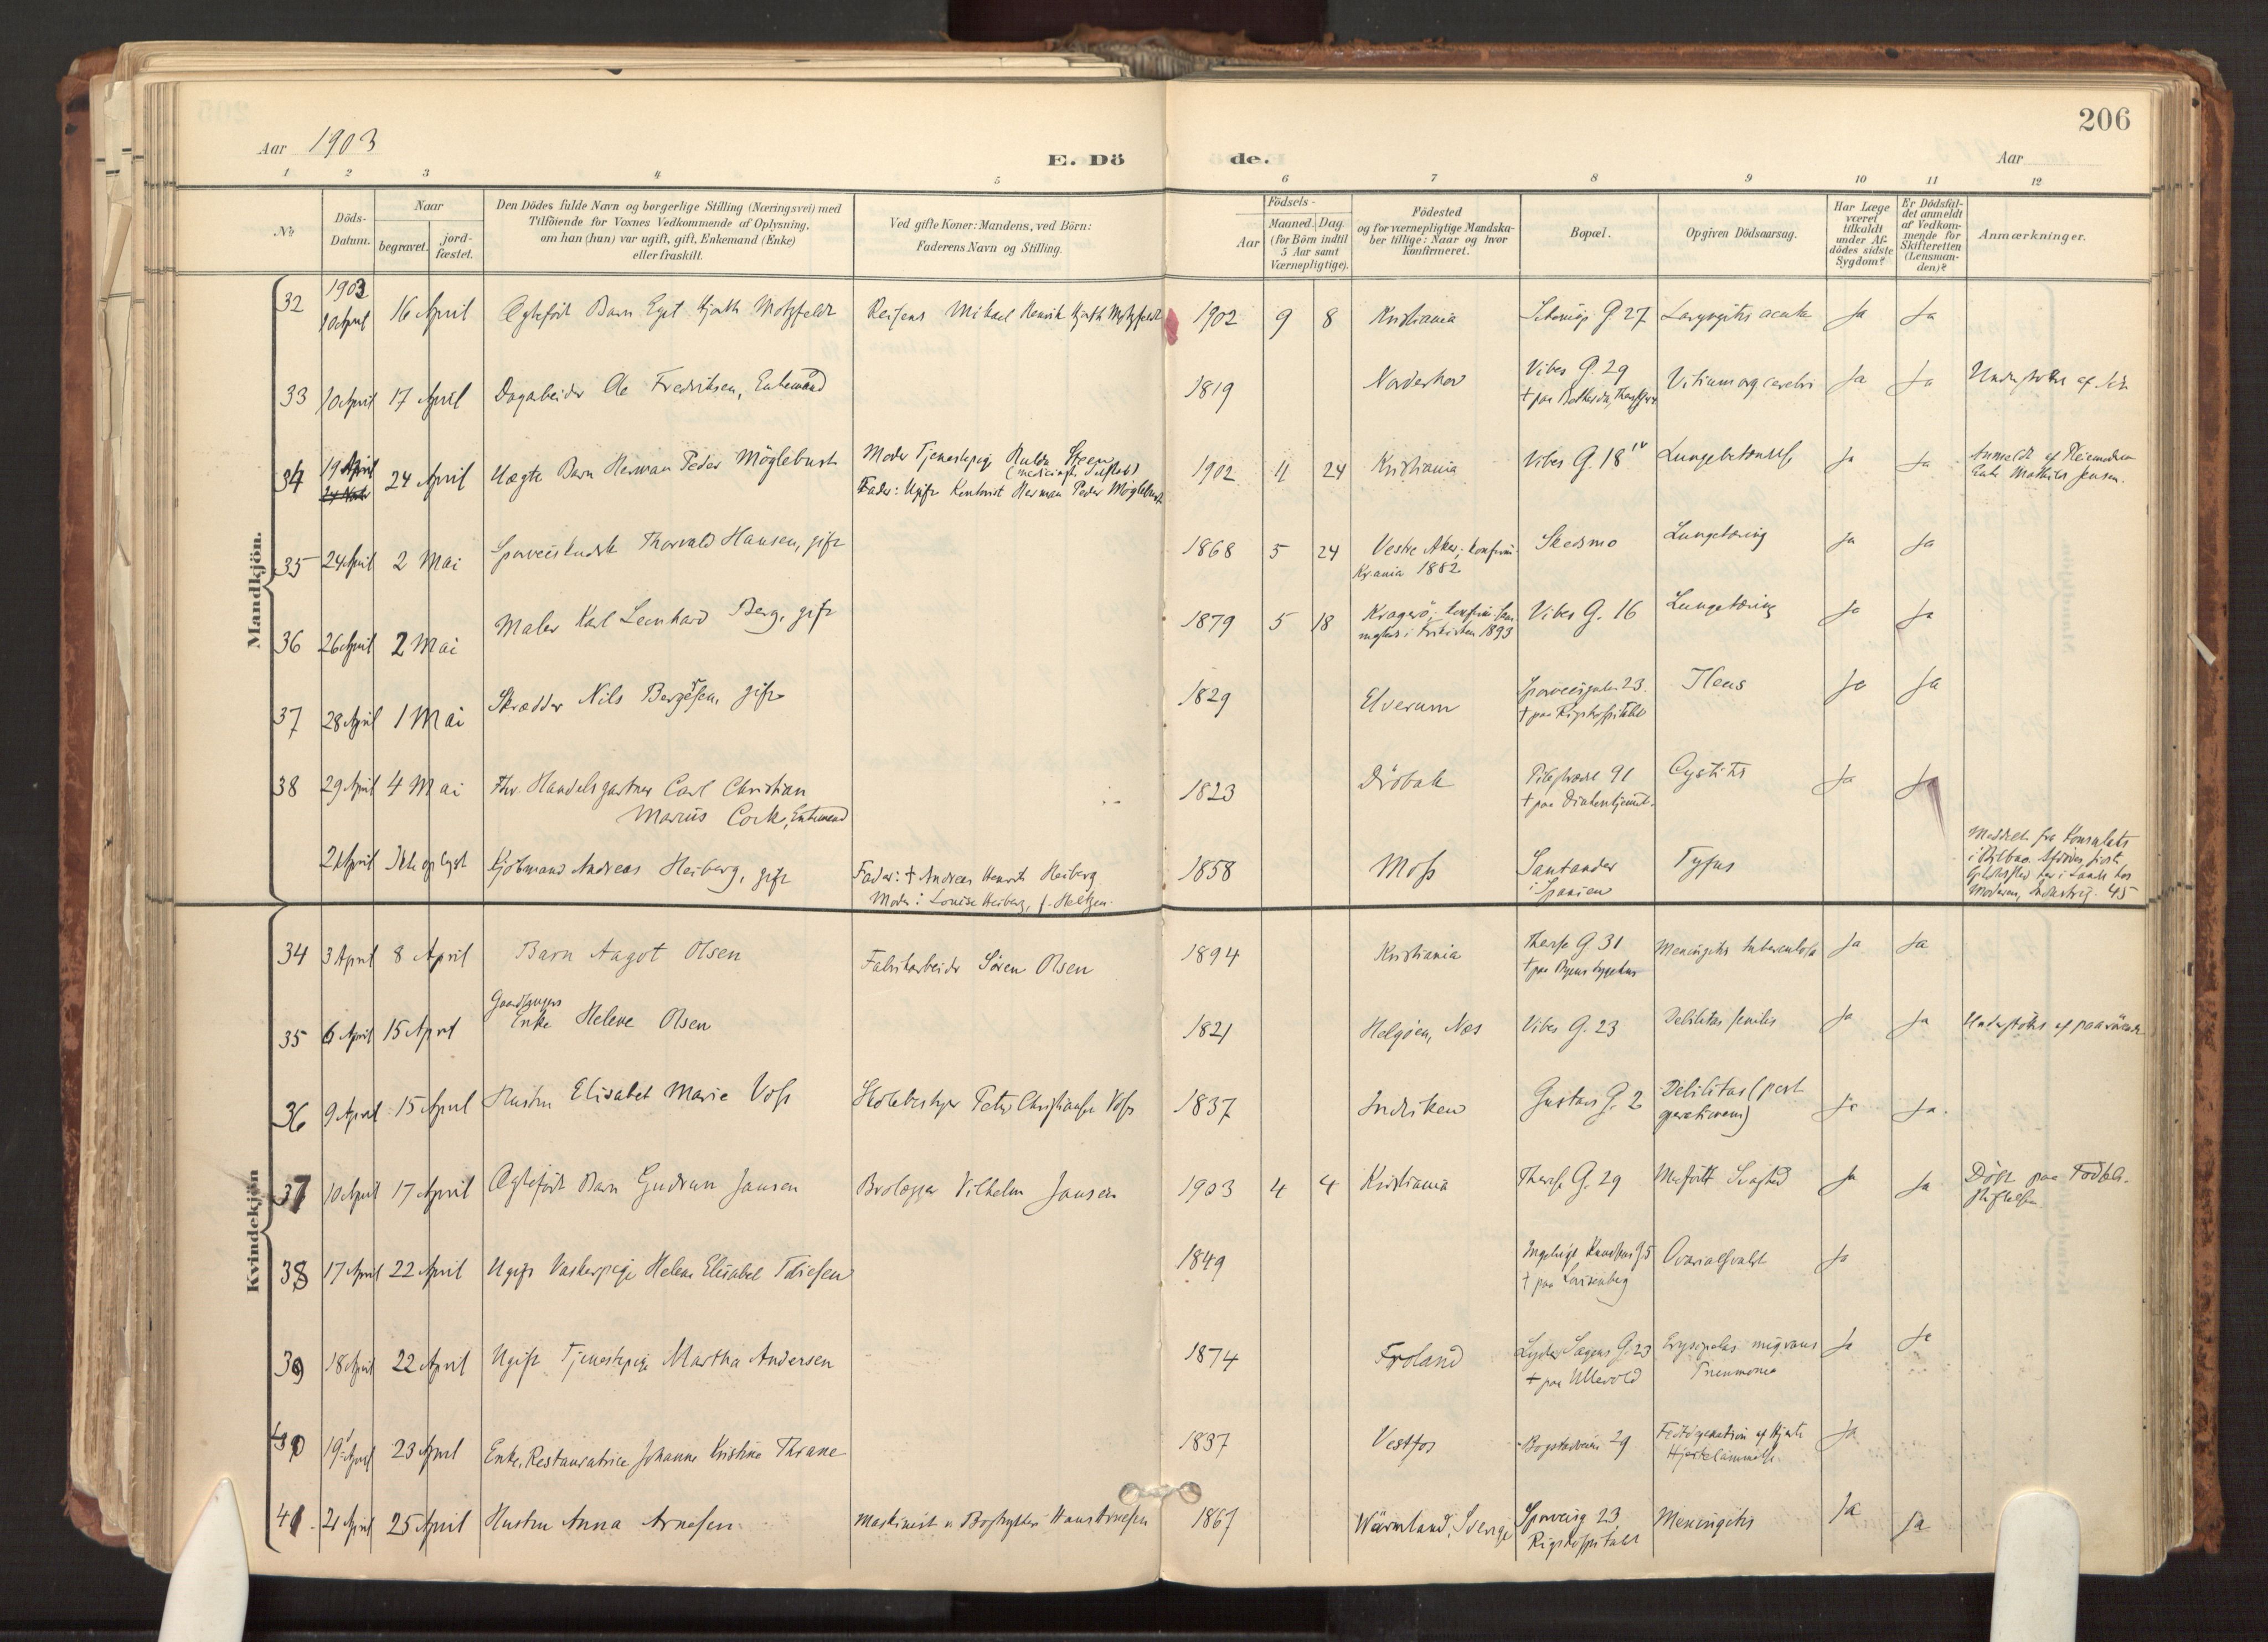 206
Aar 1903
E. Dö de.
Aar
1 2 3 4 5 6 7 8 9 10 11 12
No
Döds-
Datum.
Naar
begravet.
jord-
fæstet.
Den Dödes fulde Navn og borgerlige Stilling (Næringsvei) med
Tilföiende for Voxnes Vedkommende af Oplysning,
om han (hun) var ugift, gift, Enkemand (Enke)
eller fraskilt.
Ved gifte Koner: Mandens, ved Börn:
Faderens Navn og Stilling.
Födsels-
Aar
Maaned. Dag.
(for Börn indtil
5 Aar samt
Værnepligtige).
Födested
og for værnepligtige Mandska-
ber tillige: Naar og hvor
konfirmeret.
Bopæl.
Opgiven Dödsaarsag.
Har Læge
været
tilkaldt
under Af-
dödes sidste
Sygdom?
Er Dödsfal-
det anmeldt
af Vedkom-
mende for
Skifteretten
(Lensman-
den)?
Anmærkninger.
Mandkjön.
1903
32 10 April 16 April Ægtefödt Barn Egil Hjorth Motzfeldt Mikael Henrik Hjorth Motzfeldt 1902 9 8 Kristiania G 27 Laryngitis acuta Ja Ja
33 10 April 17 April Dagarbeider Ole Fredriksen, Enkemand 1819 Norderhov Vibes G. 29 Vitium org cerebri Ja Ja
34 19 April 24 April Uægte Barn Herman Peder Möglebust Moder Tjenestepige Hulda
Fader: Ugift Kontorist Herman Peder Möglebust 1902 11 24 Kristiania Vibes G. 18 IV Lungebetændelse Ja Ja Anmeldt af Pleiemoderen
Enke Mathilde Jensen.
35 24 April 2 Mai Sporveiskudsk Thorvald Hansen, gift 1868 5 24 Vestre Aker; konfirm.
Kr.ania 1882 Skedsmo Lungetæring Ja Ja
36 26 April 2 Mai Maler Karl Leonhard Berg, gift 1879 5 18 Kragerö; 1893 Vibes G. 16 Lungetæring Ja Ja
37 28 April 1 Mai Skrædder Nils Bergersen, gift 1829 Elverum Sporveisgaden 23.
† paa Rigshospitalet Ileus Ja Ja
38 29 April 4 Mai Fhv. Handelsgartner Carl Christian
Marius Cock, Enkemand 1823 Dröbak Pilestrædet 91
† paa Diakonhjemmet. Cystitis Ja Ja
21 April Kjöbmand Andreas Heiberg, gift Fader: † Andreas Heiberg
Moder: Louise Heiberg, f. Heltzen. 1858 Moss Santander
i Spanien Tyfus Meddelt fra Konsulatet
i Bilbao.
Moderen, Industrig. 45
Kvindekjön
34 3 April 8 April Barn Aagot Olsen Fabrikarbeider Sören Olsen 1894 Kristiania Theres G 31
† paa Byens Sygehus Meningitis tuberculosa Ja Ja
35 6 April 15 April Enke Helene Olsen 1821 Helgöen, Næs Vibes G. 23 Debilitas senilis Ja Ja
36 9 April 15 April Hustru Elisabet Marie Voss Skolebestyrer Peter Christian Voss 1837 Inderöen Gustavs G. 2 Debilitas (post
operationem) Ja Ja.
37 10 April 17 April Ægtefödt Barn Gudrun Jansen Brolægger Vilhelm Jansen 1903 4 4 Kristiania Theres G. 29 Medfödt Svaghed Ja Ja Döbt paa Födsels-
stiftelsen.
38 17 April 22 April Ugift Vaskerpige Helene Elisabet 1849 † paa Lovisenberg Ja
39 18 April 22 April Ugift Tjenestepige Martha Andersen 1874 Froland Lyder Sagens G. 23
† paa Ullevold Erysipelas migrans
Pneumonia Ja Ja
40 19 April 23 April Enke, Restauratrice Johanne Kristine Thrane 1837 Vestfos Bogstadveien 29 Fedtdegeneration af Hjerte
Hjertelammelse. Ja
41 21 April 25 April Hustru Anna Arnesen Maskinist v. Bogtrykkeri Hans Arnesen 1867 Wärmland, Sverige Sporveisg 23
Rigshospitalet Meningitis Ja Ja